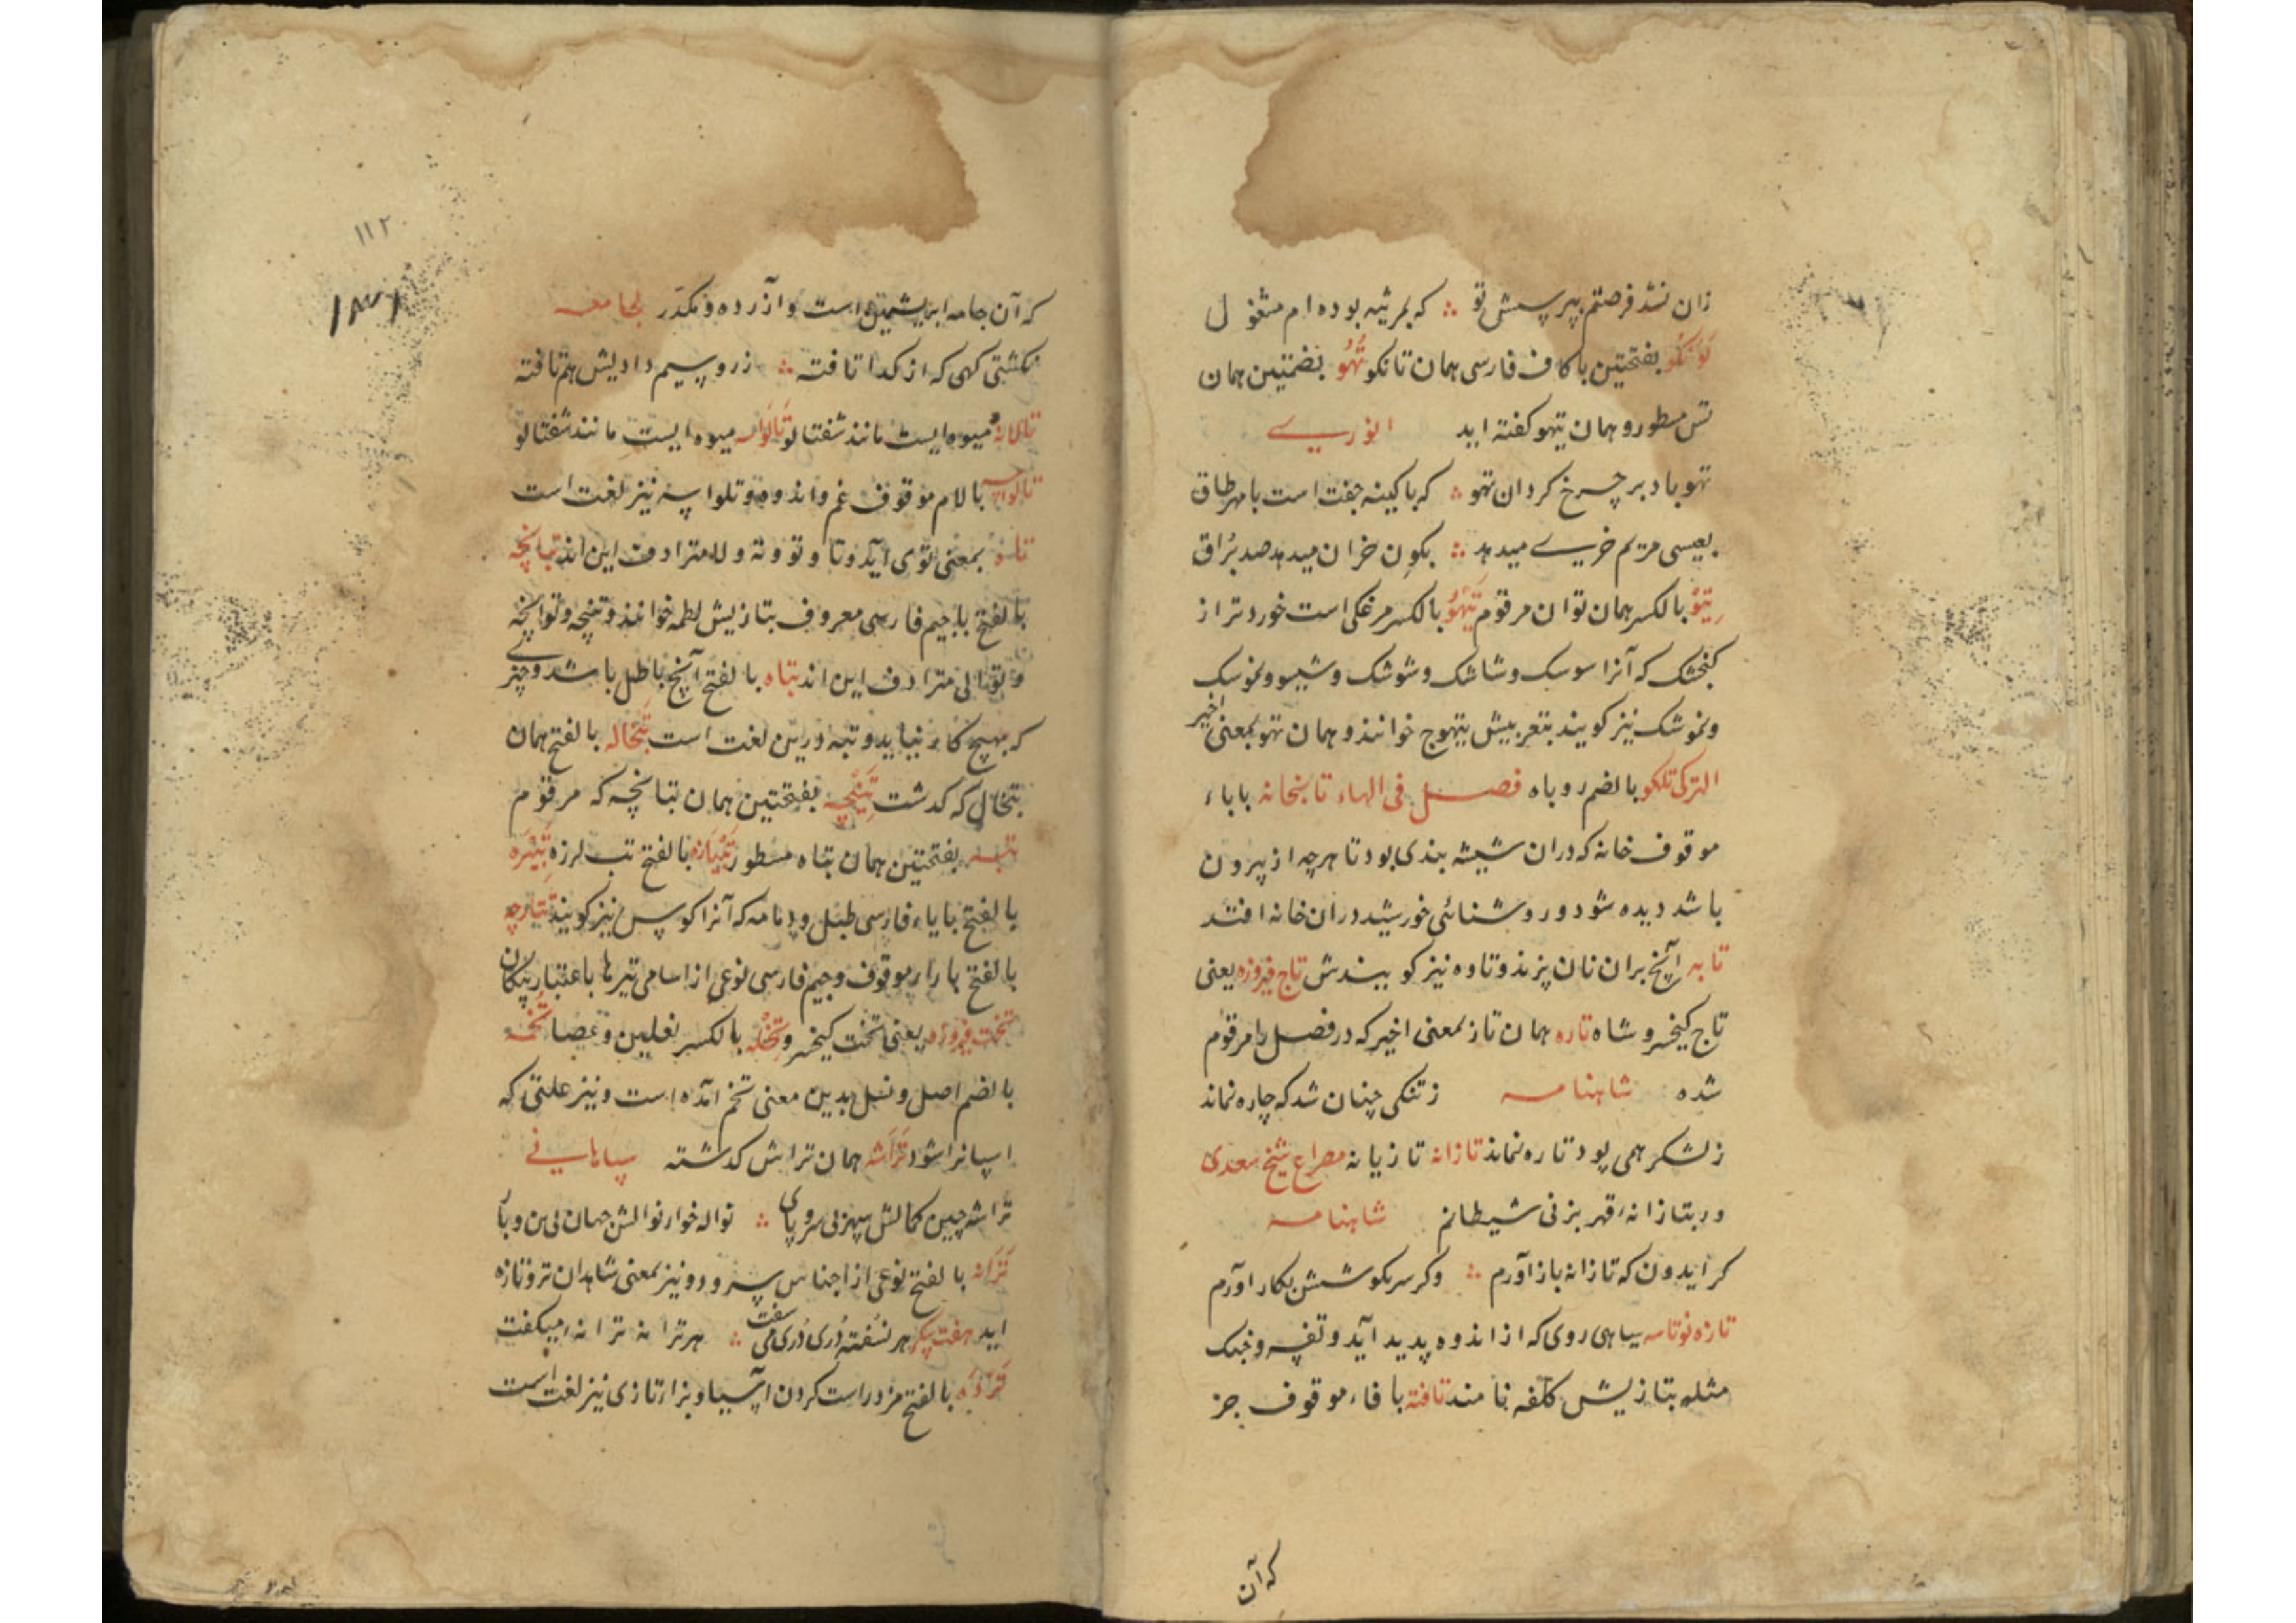 زان نشد فرصتم بپرسش تو ؞ که بمرثیه بوده ام مشغول
تونکو بفتحتین با کاف فارسی همان تانکو تهو بضمتین همان
تس مسطور و همان تیهو کفته اید انوری
تهو باد بر چرخ کردان تهو ؞ که با کینه جفت است با مهر طاق
بعیسی مریم خری میدهد ؞ بکون خران میدهد صد براق
تیو بالکسر همان توان مرقوم تیهو بالکسر مرغکی است خوردتر از
کنجشک که آنرا سوسک و شاشک و شوشک و شیسو و نموسک
و نموشک نیز کویند بتعریبش تیهوج خوانند و همان تهو بمعنی اخیر
الترکی تلکو بالضم روباه فصل فی الهاء تابخانه با باء
موقوف خانه که دران شیشه بندی بود تا هرچه از بیرون
باشد دیده شود و روشنائی خورشید دران خانه افتد
تابه آنچ بران نان پزند و تاوه نیز کویندش تاج فیروزه یعنی
تاج کیخسرو شاه تاره همان تاز بمعنی اخیر که در فصل را مرقوم
شده شاهنامه ز تنکی چنان شد که چاره نماند
ز لشکر همی پود تاره نماند تازانه تازیانه مصراع شیخ سعدی
ور بتازانه قهر بزنی شیطانم شاهنامه
کر ایدون که تازانه باز آورم ؞ وکر سر بکوشش بکار اورم
تازه نو تاسه سیاهی روی که از اندوه پدید آید و تفسه و خجک
مثله بتازیش کلفه نامند تافته با فاء موقوف جز
که آن
۱۱۲
که آن جامه ابریشمین است و آزرده و مکدر لجامعه
نکشتی کهی که از کدا تافته ؞ ز رو سیم دادیش هم تافته
تالانه میوه ایست مانند شفتالو تالوسه میوه ایست مانند شفتالو
تالواسه بالام موقوف غم و اندوه و تلواسه نیز لغت است
تاه بمعنی توی آید و تا و تو و ته و لا مترادف این اند تپانچه
بالفتح با جیم فارسی معروف بتازیش لطمه خوانند و تپنچه و توانچه
و توالی مترادف این اند تباه بالفتح آنچ باطل باشد و چیزی
که بهیچ کار نیاید و تبه درین لغت است تبخاله بالفتح همان
تبخال که کدشت تپنچه بفتحتین همان تپانچه که مرقوم
تبه بفتحتین همان تباه مسطور تبیازه بالفتح تب لرزه تبیره
بالفتح با یاء فارسی طبل و دمامه که آنرا کوس نیز کویند تتارچه
بالفتح با راء موقوف و جیم فارسی نوعی از اسامی تیرها باعتبار پیکان
تخت فیروزه یعنی تخت کیخسرو تخله بالکسر نعلین و عصا تخمه
بالضم اصل و نسل بدین معنی تخم آمده است و نیز علتی که
اسپانرا شود تراشه همان تراش کدشته سپاهانی
تراشه چین کمالش سپهر بی سر و پای ؞ نواله خوار نوالش جهان بی بن و با
ترانه بالفتح نوعی از اجناس سرود و نیز بمعنی شاهدان تر و تازه
اید هفت پیکر هر نسفته دری دری می سفت ؞ هر ترانه ترانه میکفت
ترده بالفتح مزد راست کردن اسیا و بزاء تازی نیز لغت است